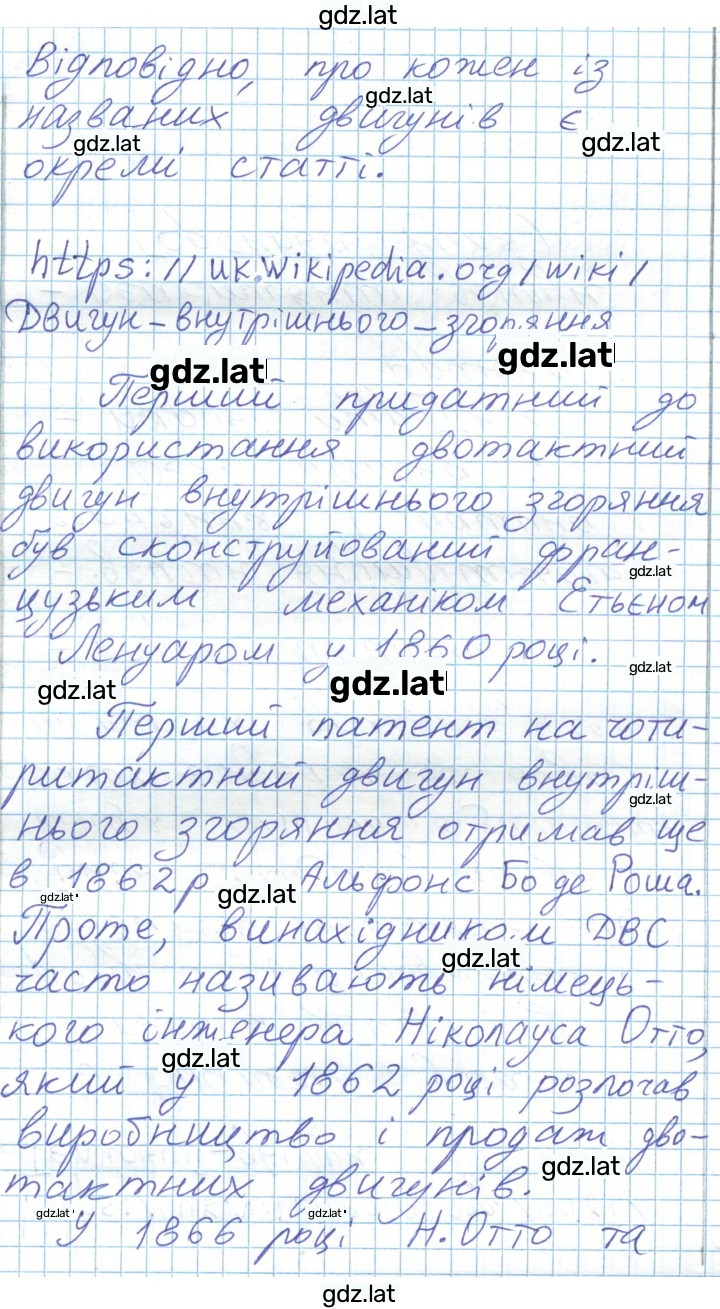 gdz.lat
Відповідно, про кожен із
gdz.lat
названих двигунів є
gdz.lat gdz.lat
окремі статті.
https://uk.wikipedia.org/wiki/
Двигун_внутрішнього_згоряння
gdz.lat gdz.lat
Перший придатний до
використання двотактний
двигун внутрішнього згоряння
був сконструйований фран-
gdz.lat
цузьким механіком Етьєном
Ленуаром у 1860 році.
gdz.lat
gdz.lat gdz.lat
Перший патент на чоти-
ритактний двигун внутріш-
gdz.lat
нього згоряння отримав ще
в 1862р Альфонс Бо де Роша.
gdz.lat gdz.lat
Проте, винахідником ДВС
gdz.lat
часто називають німець-
кого інженера Ніколауса Отто,
gdz.lat
який у 1862 році розпочав
виробництво і продаж дво-
gdz.lat
тактних двигунів.
gdz.lat gdz.lat
У 1866 році Н.Отто та
gdz.lat